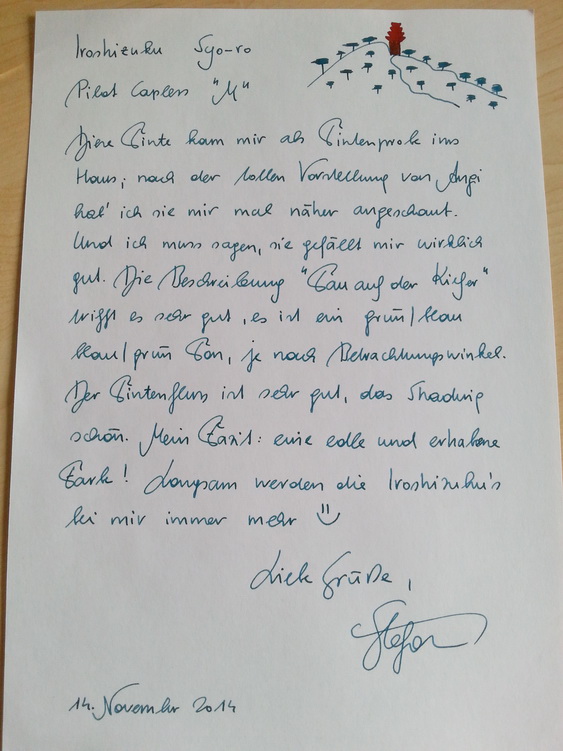 Iroshizuku Syo-ro
Pilot Capless "M"
Diese Tinte kam mir als Tintenprobe ins
Haus; nach der tollen Vorstellung von Angi
hab' ich sie mir mal näher angeschaut.
Und ich muss sagen, sie gefällt mir wirklich
gut. Die Beschreibung "Tau auf der Kiefer"
trifft es sehr gut, es ist ein grün/blau
blau/grün Ton, je nach Betrachtungswinkel.
Der Tintenfluss ist sehr gut, das Shading
schön. Mein Fazit: eine edle und erhabene
Farbe! Langsam werden die Iroshizuku's
bei mir immer mehr
Liebe Grüße,
Stefan
14. November 2014